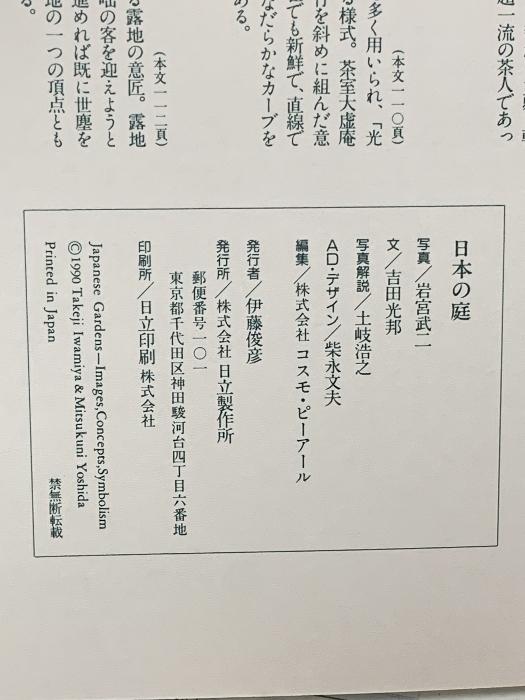 超一流の茶人であっ
多く用いられ、「光
る様式。茶室大虚庵
行を斜めに組んだ意
ても新鮮で、直線で
なだらかなカーブを
ある。
(本文一一〇頁)
る露地の意匠。露地
咄の客を迎えようと
進めれば既に世塵を
地の一つの頂点とも
る。
(本文一一二頁)
日本の庭
写真／岩宮武二
文／吉田光邦
写真解説／土岐浩之
AD・デザイン／柴永文夫
編集／株式会社 コスモ・ピーアール
発行者／伊藤俊彦
発行所／株式会社 日立製作所
郵便番号一〇一
東京都千代田区神田駿河台四丁目六番地
印刷所／日立印刷 株式会社
Japanese Gardens—Images,Concepts,Symbolism
©1990 Takeji Iwamiya & Mitsukuni Yoshida
Printed in Japan
禁無断転載